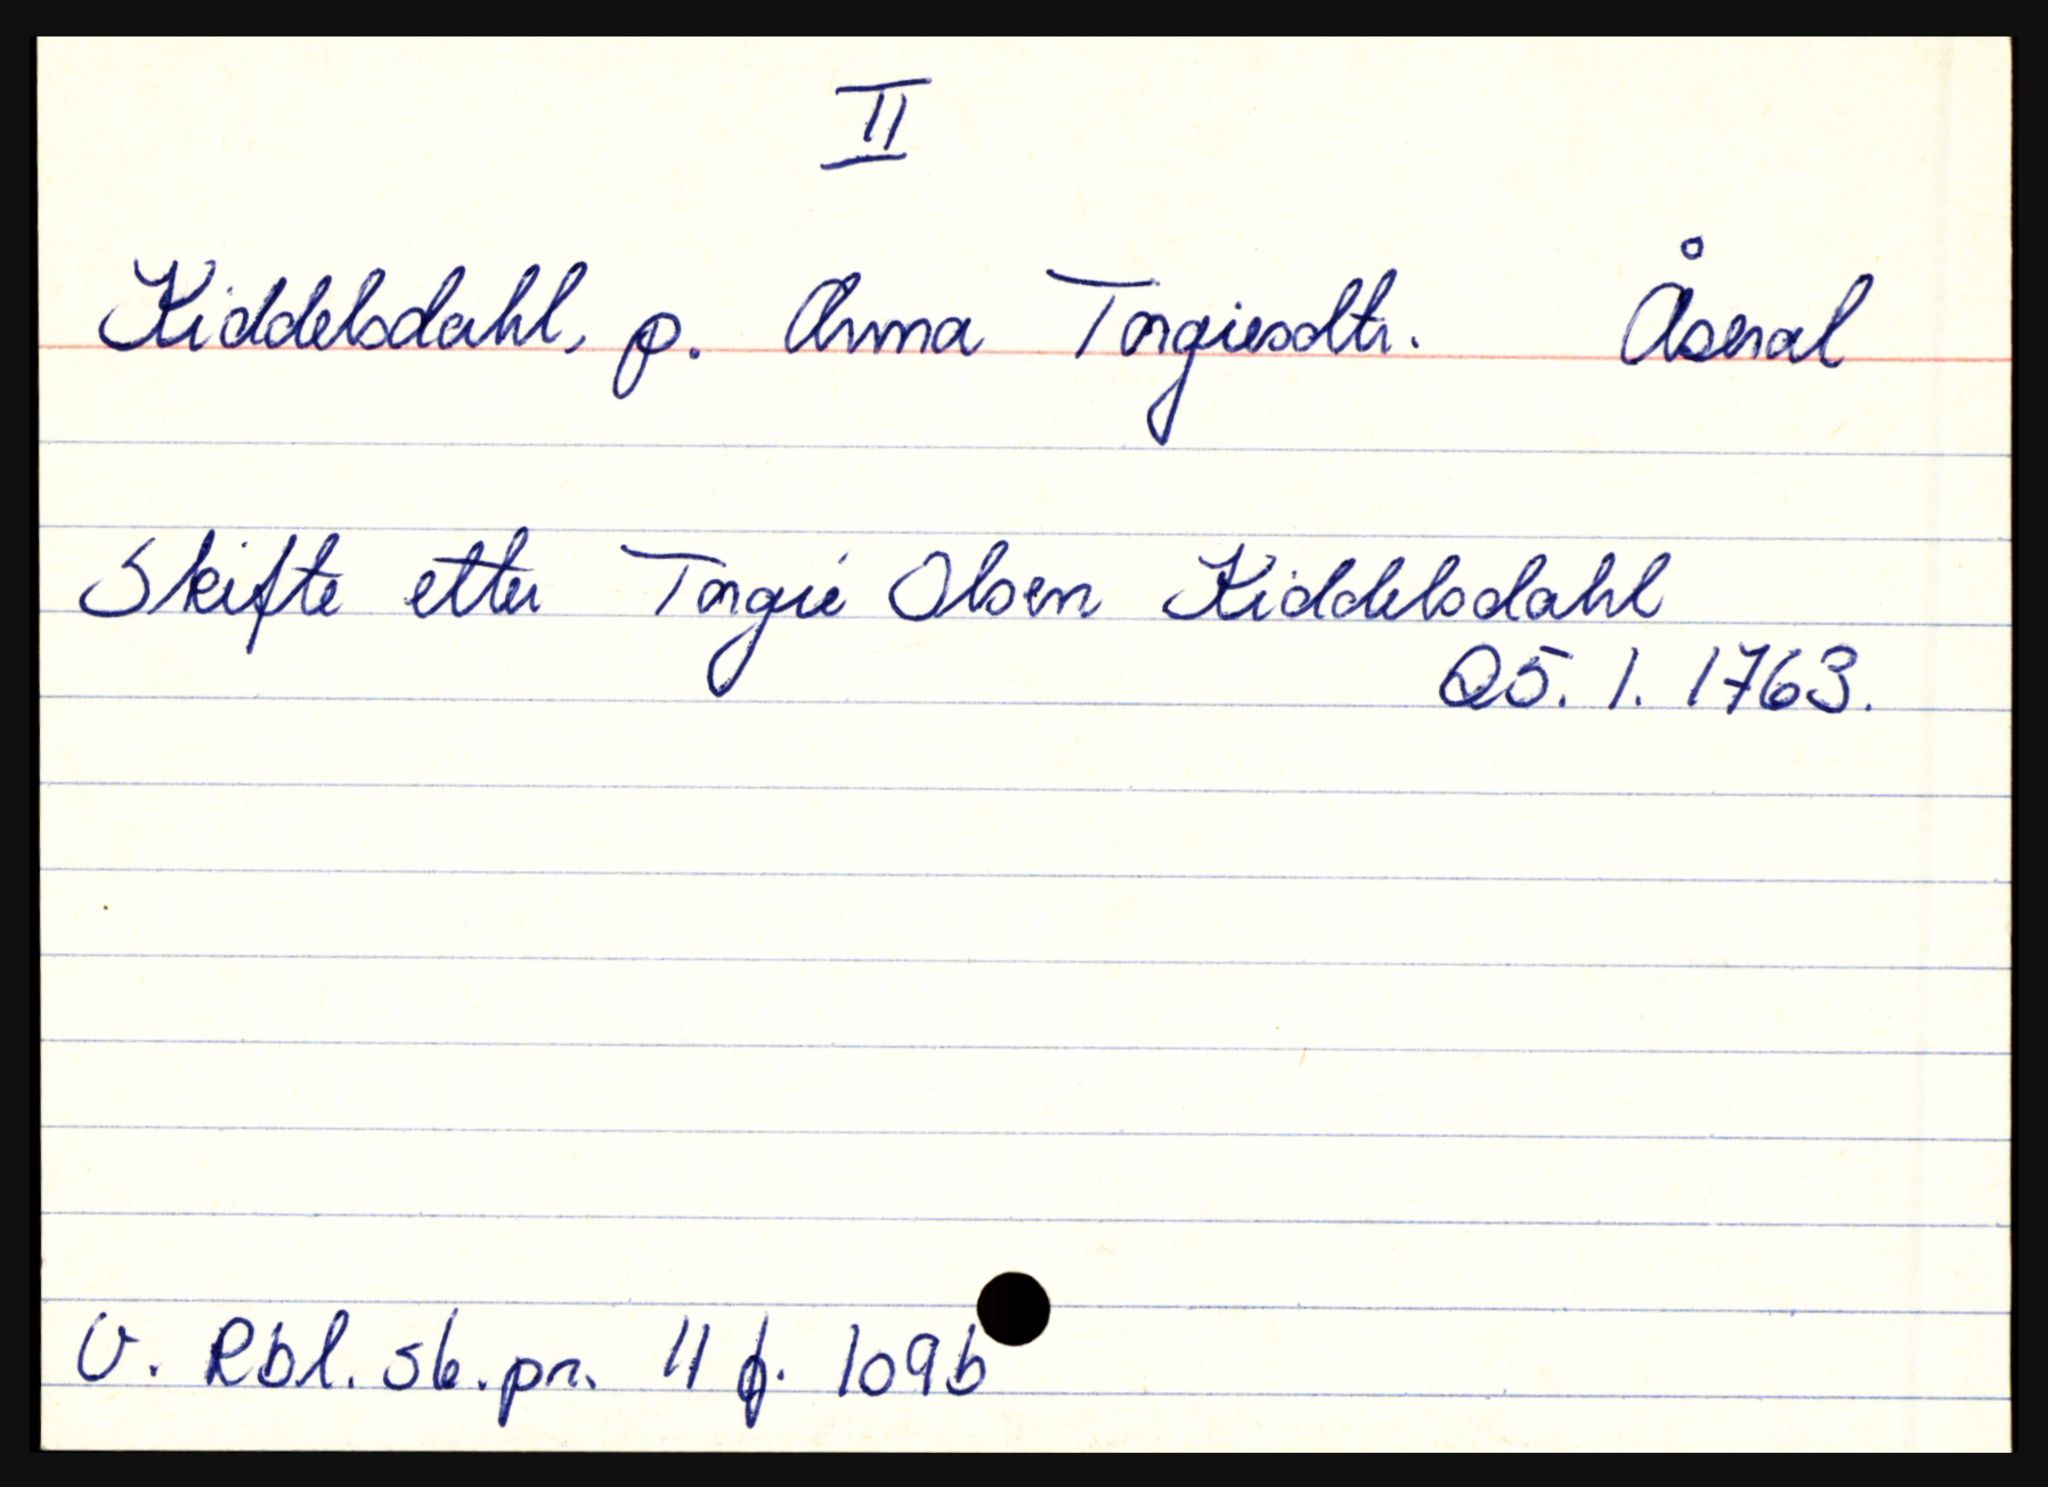 II
Kiddelsdahl, p. Anna Torgiesdtr. Åseral
Skifte etter Torgie Olsen Kiddelsdahl
25. 1. 1763.
V. Rbl. sk.pr. 11 f. 109b